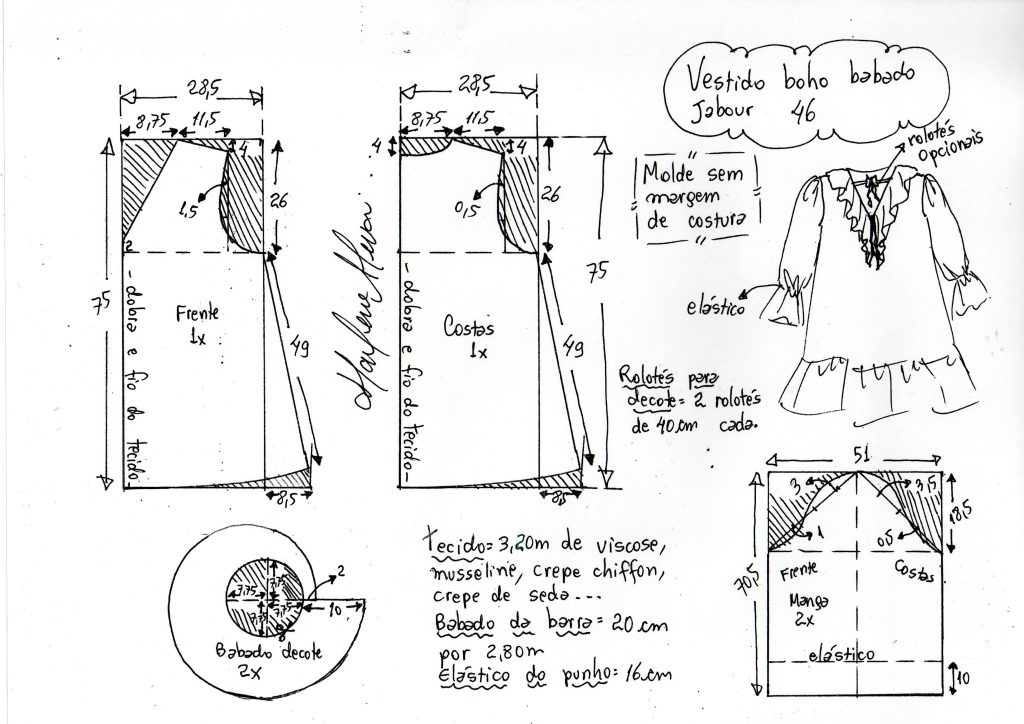 Vestido boho babado
Jabour 46
rolotés
opcionais
Molde sem
margem
de costura
elástico
Rolotés para
decote = 2 rolotés
de 40cm cada.
28,5
8,75
11,5
4
1,5
26
2
75
Frente
1x
- dobra e fio do tecido -
49
8,5
28,5
8,75
11,5
4
4
0,5
26
75
Costas
1x
- dobra e fio do tecido -
49
8,5
51
3
3,5
18,5
1
0,5
Frente
Costas
Manga
2x
70,5
elástico
10
2
7,75
7,75
7,75
7,75
10
Babado decote
2x
tecido = 3,20m de viscose,
musseline, crepe chiffon,
crepe de seda...
Babado da barra = 20 cm
por 2,80m
Elástico do punho = 16cm